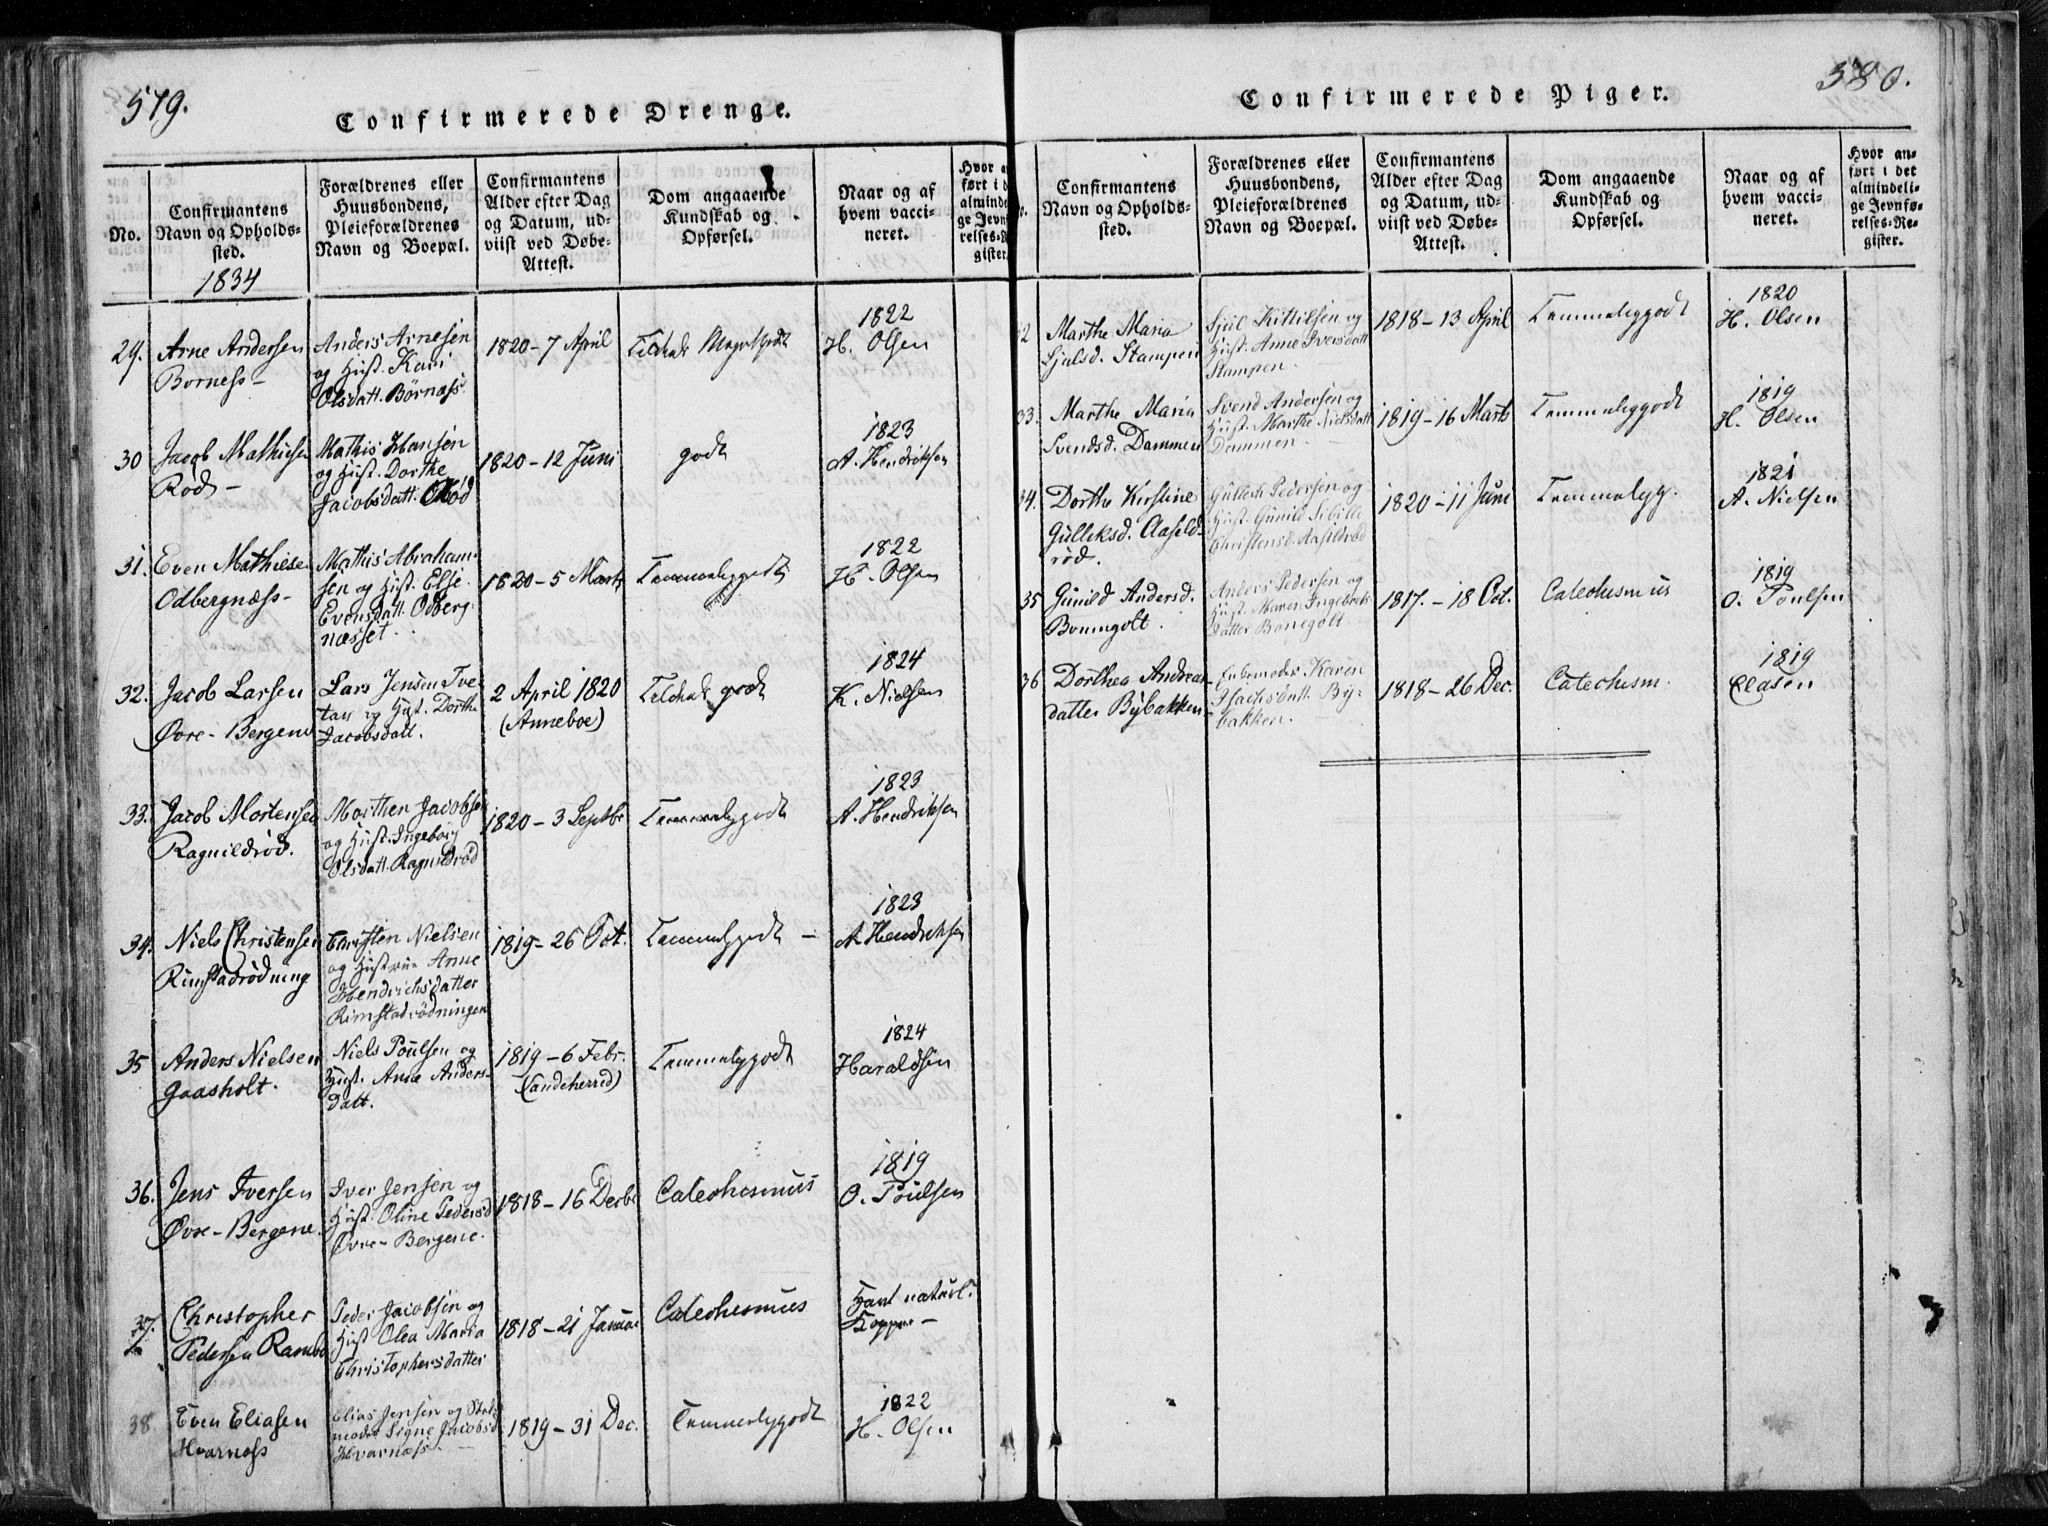 579.
Confirmerede Drenge.
No.
Confirmantens
Navn og Opholds-
sted.
1834
Forældrenes eller
Huusbondens,
Pleieforældrenes
Navn og Boepæl.
Confirmantens
Alder efter Dag
og Datum, ud-
viist ved Døbe-
Attest.
Dom angaaende
Kundskab og
Opførsel.
Naar og af
hvem vacci-
neret.
29.
Arne Andersen
Borness -
Anders Arnesen
og Hust. Kari
Olsdatt. Børnæss.
1820 - 7 April
1822
H. Olsen
30
Jacob Mathiesen
Rød -
Mathis Hansen
og Hust. Dorthe
Jacobsdatt.
1820 - 12 Juni
godt
1823
A. Hendriksen
31.
Even Mathiesen
Odbergnæss -
Mathis Abraham-
sen og Hust. Else
Evensdatt. Odberg-
næsset.
1820 - 5 Marts
Temmeliggodt
1822
H. Olsen
32.
Jacob Larsen
Øvre - Bergene
Lars Jensen Tve-
tan og Hust. Dorthe
Jacobsdatt.
2 April 1820
(Anneboe)
godt
1824
K. Nielsen
33.
Jacob Mortensen
Ragnildrød.
Morthen Jacobsen
og Hust. Ingeborg
Olsdatt. Ragnildrød
1820 - 3 Septbr
Temmeliggodt
1823
A. Hendriksen
34.
Niels Christensen
Rimstadrødning
Christen Nielsen
og Hustrue Anne
Hendrichsdatter
Rimstadrødningen
1819 - 26 Oct.
Temmeliggodt -
1823
A. Hendriksen
35
Anders Nielsen
Gaasholt.
Niels Poulsen og
Hust. Anne Anders-
datt.
1819 - 6 Febr.
(Sandeherred)
Temmeliggodt
1824
Haraldsen
36.
Jens Iversen
Øvre - Bergene.
Iver Jensen og
Hust. Oline Pedersd
Øvre - Bergene.
1818 - 16 Decbr
Catechesmus
1819
O. Poulsen
37.
Christopher
Pedersen Ramboe
Peder Jacobsen og
Hust Olea Maria
Christophersdatter
1818 - 21 Januar
Catechesmus
Havt naturl.
Kopper -
38.
Even Eliasen
Hvarness
Elias Jensen og Stif-
moder Signe Jacobsd
Hvarness. -
1819 - 31 Dec.
Temmeliggodt
1822
H. Olsen
380.
Confirmerede Piger.
Confirmantens
Navn og Opholds-
sted.
Forældrenes eller
Huusbondens,
Pleieforældrenes
Navn og Boepæl.
Confirmantens
Alder efter Dag
og Datum, ud-
viist ved Døbe-
Attest.
Dom angaaende
Kundskab og
Opførsel.
Naar og af
hvem vacci-
neret.
Hvor an-
ført i det
almindeli-
ge Jevnfø-
relses-Re-
gister.
Marthe Maria
Sjulsd. Stampen
Sjul Kittilsen og
Hust. Anne Iversdatt
Stampen.
1818 - 13 April
Temmeliggodt
1820
H. Olsen
33.
Marthe Maria
Svendsd. Dammen
Svend Andersen og
Hust. Marthe Nielsdatt
Dammen -
1819 - 16 Marts
Temmeliggodt
1819
H. Olsen
34.
Dorthe Kirstine
Gulleksd. Aaseld-
rød.
Gullech Pedersen og
Hust. Gunild Sibille
Christensd. Aaseldrød
1820 - 11 Juni
Temmelig g.
1821
A. Nielsen
35
Gunild Andersd.
Bonnegolt.
Anders Pedersen og
Hust. Maren Ingebrets-
datter Bonegolt
1817. - 18 Oct.
Catechusmus
1819
O. Poulsen
36
Dorthea Andreas-
datter Bÿbakken
Enkemoder Karen
Isachsdatt. Bÿ-
bakken.
1818 - 26 Dec.
Catechusm.
1819
Clasen